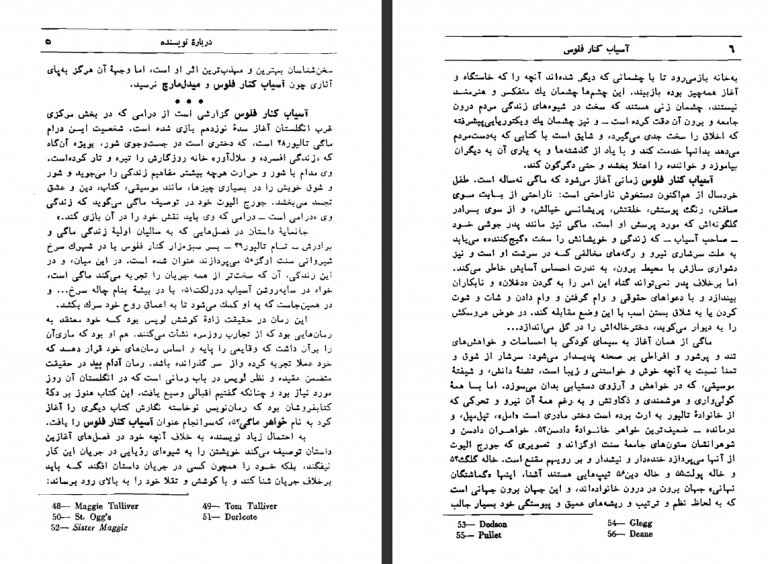 دربارهٔ نویسنده ۵
سخن‌شناسان بهترین و مهذب‌ترین اثر او است، اما وجههٔ آن هرگز به‌پای
آثاری چون آسیاب کنار فلوس و میدل‌مارچ نرسید.
• • •
آسیاب کنار فلوس گزارشی است از درامی که در بخش مرکزی
غرب انگلستان آغاز سدهٔ نوزدهم بازی شده است. شخصیت این درام
ماگی تالیور۴۸ است، که دختری است در جست‌وجوی شور، بویژه آن‌گاه
که «زندگی افسرده و ملال‌آور» خانه روزگارش را تیره و تار کرده‌است.
وی مدام با شور و حرارت هرچه بیشتر مفاهیم زندگی را می‌جوید و شور
و شوق خویش را در بسیاری چیزها، مانند موسیقی، کتاب، دین و عشق
تجسد می‌بخشد. جورج الیوت خود در توصیف ماگی می‌گوید که زندگی
وی «درامی است ــ درامی که وی باید نقش خود را در آن بازی کند.»
جانمایهٔ داستان در فصل‌هایی که به سالیان اولیهٔ زندگی ماگی و
برادرش ــ تام تالیور۴۹ ــ بر سبزه‌زار کنار فلوس یا در شهرک سرخ
شیروانی سنت اوگز۵۰ می‌پردازند عنوان شده است. در این میان، و در
این زندگی، آن که سخت‌تر از همه جریان را تجربه می‌کند ماگی است،
خواه در سایه‌روشن آسیاب دورلکت۵۱، یا در بیشهٔ بنام چاله سرخ... و
در همین‌جاست که به او کمک می‌شود تا به اعماق روح خود سرک بکشد.
این رمان در حقیقت زادهٔ کوشش لویس بود که خود معتقد به
رمان‌هایی بود که از تجارب روزمره نشأت می‌کنند. هم او بود که ماری‌آن
را برآن داشت که وقایعی را پایه و اساس رمان‌های خود قرار دهد که
خود عملا تجربه کرده واز سر گذرانده باشد. رمان آدام بید در حقیقت
متضمن عقیده و نظر لویس در باب رمانی است که در انگلستان آن روز
مورد نیاز بود و چنانکه گفتیم اقبالی وسیع یافت. این کتاب هنوز بر دکهٔ
کتابفروشان بود که رمان‌نویس نوخاسته نگارش کتاب دیگری را آغاز
کرد به نام خواهر ماگی۵۲، که‌سرانجام عنوان آسیاب کنار فلوس را یافت.
به احتمال زیاد نویسنده به خلاف آنچه خود در فصل‌های آغازین
داستان توصیف می‌کند خویشتن را به شیوه‌ای رؤیایی در جریان این کار
نیفگند، بلکه خود را همچون کسی در جریان داستان افگند که باید
برخلاف جریان شنا کند و با کوشش و تقلا خود را به بالای رود برساند:
48— Maggie Tulliver 49— Tom Tulliver
50— St. Ogg's 51— Dorlcote
52— Sister Maggie
۶ آسیاب کنار فلوس
به‌خانه بازمی‌رود تا با چشمانی که دیگر شده‌اند آنچه را که خاستگاه و
آغاز همه‌چیز بوده بازبیند. این چشم‌ها چشمان یك متفکس و هنرمند
نیستند، چشمان زنی هستند که سخت در شیوه‌های زندگی مردم درون
جامعه و برون آن دقت کرده است ــ و نیز چشمان یك ویکتوریایی‌پیشرفته
که اخلاق را سخت جدی می‌گیرد، و شایق است با کتابی که به‌دست‌مردم
می‌دهد بدانها خدمت کند و با یاد از گذشته‌ها و به یاری آن به دیگران
بیاموزد و خواننده را اعتلا بخشد و حتی دگرگون کند.
آسیاب کنار فلوس زمانی آغاز می‌شود که ماگی نه‌ساله است. طفل
خردسال از هم‌اکنون دستخوش ناراحتی است: ناراحتی از بابت موی
صافش، رنگ پوستش، خلقتش، پریشانی خیالش، و از سوی برادر
گلگونه‌اش که مورد پرس او است. ماگی نیز مانند پدر جوشی خود
ــ صاحب آسیاب ــ که زندگی و خویشانش را سخت «گیج‌کننده» می‌یابد
به علت سرشاری نیرو و رگه‌های مخالفی که در سرشت او است و نیز
دشواری سازش با محیط برون، به ندرت احساس آسایش خاطر می‌کند.
اما برخلاف پدر نمی‌تواند گناه این امر را به گردن «دغلان» و نابکاران
بیندازد و با دعواهای حقوقی و وام گرفتن و وام دادن و شات و شوت
کردن یا به شلاق بستن اسب با این وضع مقابله کند. در عوض عروسکش
را به دیوار می‌کوبد، دخترخاله‌اش را در گل می‌اندازد...
ماگی از همان آغاز به سیمای کودکی با احساسات و خواهش‌های
تند و پرشور و افراطی بر صحنه پدیدار می‌شود: سرشار از شوق و
تمنا نسبت به آنچه خوش و خواستنی و زیبا است، تشنهٔ دانش، و شیفتهٔ
موسیقی، که در خواهش و آرزوی دستیابی بدان می‌سوزد، اما بـا همهٔ
کولی‌واری و هوشمندی و ذکاوتش و به رغم همهٔ آن نیرو و تحرکی که
از خانوادهٔ تالیور به ارث برده است دختر مادری است «امل»، تپل‌مپل، و
درمانده ــ ضعیف‌ترین خواهر خانوادهٔ دادسن۵۳. خواهران دادسن و
شوهرانشان ستون‌های جامعهٔ سنت اوگزاند و تصویری که جورج الیوت
از آنها می‌پردازد خنده‌دار و نیشدار و بر رویهم مقنع است. خاله گلگ۵۴
و خاله پولت۵۵ و خاله دین۵۶ تیپ‌هایی هستند آشنا، اینها «گماشتگان
نهانی» جهان برون در درون خانواده‌اند، و این جهان برون جهانی است
که به لحاظ نظم و ترتیب و ریشه‌های عمیق و پیوستگی خود بسیار جالب
53— Dodson 54— Glegg
55— Pullet 56— Deane